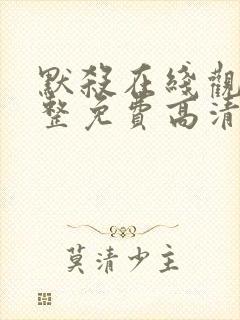 默殺在綫觀
整免費高清
莫清少主